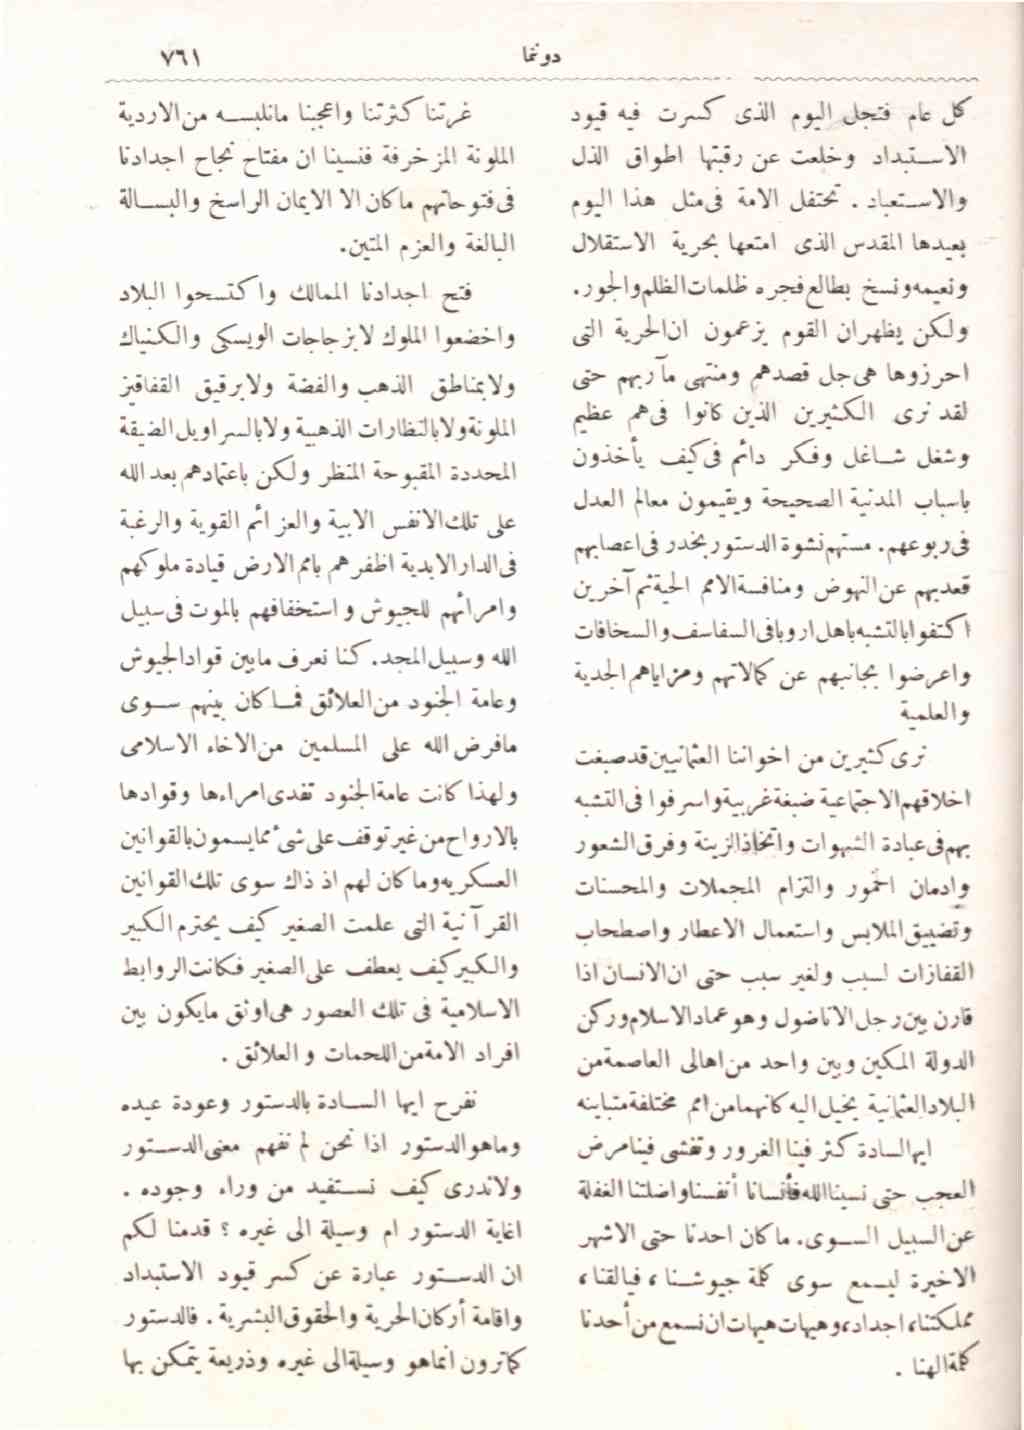 دونما
٧٦١
كل عام فتجل اليوم الذى كسرت فيه قيود
الاستبداد وخلعت عن رقبتها اطواق الذل
والاستعباد . تحتفل الامة فى مثل هذا اليوم
بعيدها المقدس الذى امتعها بحرية الاستقلال
ونعيمه ونسخ بطالع فجره ظلمات الظلم والجور.
ولكن يظهر ان القوم يزعمون ان الحرية التى
احرزوها هى جل قصدهم ومنتهى مآربهم حتى
لقد نرى الكثيرين الذين كانوا فى هم عظيم
وشغل شاغل وفكر دائم فى كيف يأخذون
باسباب المدنية الصحيحة ويقيمون معالم العدل
فى ربوعهم. مستهم نشوة الدستور بخدر فى اعصابهم
قعدبهم عن النهوض ومنافسة الامم الحية ثم آخرين
اكتفوا بالتشبه باهل اروبا فى السفاسف والسخافات
واعرضوا بجانبهم عن كمالاتهم ومزاياهم الجدية
والعلمية
نرى كثيرين من اخواننا العثمانيين قد صبغت
اخلاقهم الاجتماعية ضبغة غربية واسرفوا فى التشبه
بهم فى عبادة الشهوات واتخاذ الزينة وفرق الشعور
وادمان الخمور والتزام المجملات والمحسنات
وتضييق الملابس واستعمال الاعطار واصطحاب
القفازات لسبب ولغير سبب حتى ان الانسان اذا
قارن بين رجل الاناضول وهو عماد الاسلام وركن
الدولة المكين وبين واحد من اهالى العاصمة من
البلاد العثمانية يخيل اليه كانهما من امم مختلفة متباينه
ايها السادة كثر فينا الغرور وتفشى فينا مرض
العجب حتى نسينا الله فأنسانا أنفسنا واضلتنا الغفلة
عن السبيل السوى. ما كان احدنا حتى الاشهر
الاخيرة ليسمع سوى كلمة جيوشنا، فيالقنا،
مملكتنا، اجداد، وهيهات هيهات ان نسمع من أحدنا
كلمة الهنا .
غرتنا كثرتنا واعجبنا مانلبسه من الاردية
الملونة المزخرفة فنسينا ان مفتاح نجاح اجدادنا
فى فتوحاتهم ما كان الا الايمان الراسخ والبسالة
البالغة والعزم المتين.
فتح اجدادنا الممالك واكتسحوا البلاد
واخضعوا الملوك لا بزجاجات الويسكى والكنياك
ولا بمناطق الذهب والفضة ولا برقيق القفاقيز
الملونة ولا بالنظارات الذهبية ولا بالسراويل الضيقة
المحددة المقبوحة المنظر ولكن باعتمادهم بعد الله
على تلك الانفس الابية والعزائم القوية والرغبة
فى الدار الابدية اظفرهم بامم الارض قيادة ملوكهم
وامرائهم للجيوش واستخفافهم بالموت فى سبيل
الله وسبيل المجد. كنا نعرف مابين قواد الجيوش
وعامة الجنود من العلائق فما كان بينهم سوى
مافرض الله على المسلمين من الاخاء الاسلامى
ولهذا كانت عامة الجنود تفدى امراءها وقوادها
بالارواح من غير توقف على شئ مما يسمون بالقوانين
العسكريه وما كان لهم اذ ذاك سوى تلك القوانين
القرآنية التى علمت الصغير كيف يحترم الكبير
والكبير كيف يعطف على الصغير فكانت الروابط
الاسلامية فى تلك العصور هى اوثق مايكون بين
افراد الامة من اللحمات والعلائق .
نفرح ايها السادة بالدستور وعودة عيده
وماهو الدستور اذا نحن لم نفهم معنى الدستور
ولاندرى كيف نستفيد من وراء وجوده .
اغاية الدستور ام وسيلة الى غيره ؟ قدمنا لكم
ان الدستور عبارة عن كسر قيود الاستبداد
واقامة أركان الحرية والحقوق البشرية . فالدستور
كما ترون انما هو وسيلة الى غيره وذريعة يتمكن بها